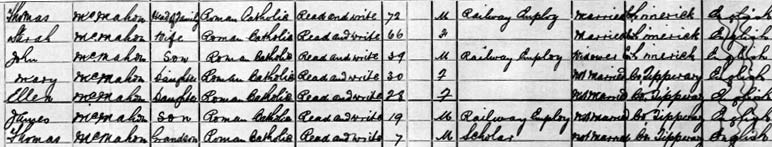 Thomas McMahon Head of Family Roman Catholic Read and write 72 M Railway Employ Married Co Limerick English
Sarah McMahon Wife Roman Catholic Read and write 66 F Married Co Limerick English
John McMahon Son Roman Catholic Read and write 39 M Railway Employ Widower Co Limerick English
Mary McMahon Daughter Roman Catholic Read and write 30 F Not Married Co Tipperary English
Ellen McMahon Daughter Roman Catholic Read and write 23 F Not Married Co Tipperary English
James McMahon Son Roman Catholic Read and write 19 M Railway Employ Not Married Co Tipperary English
Thomas McMahon Grandson Roman Catholic Read and write 7 M Scholar Not Married Co Tipperary English